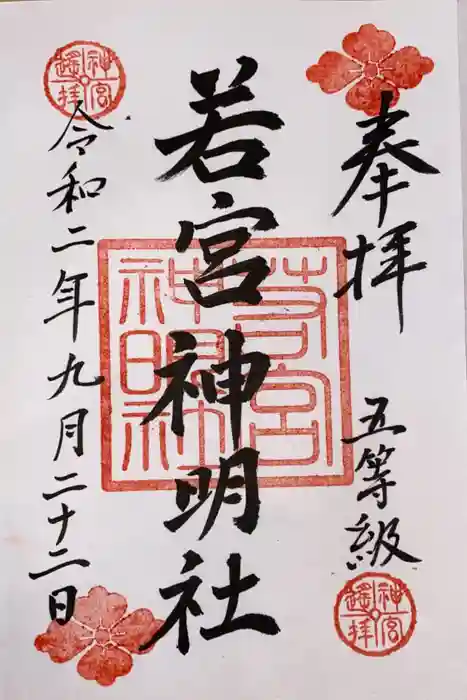 奉拝
五等級
若宮神明社
令和二年九月二十二日
若宮
神明社
神宮
遙拝
神宮
遙拝